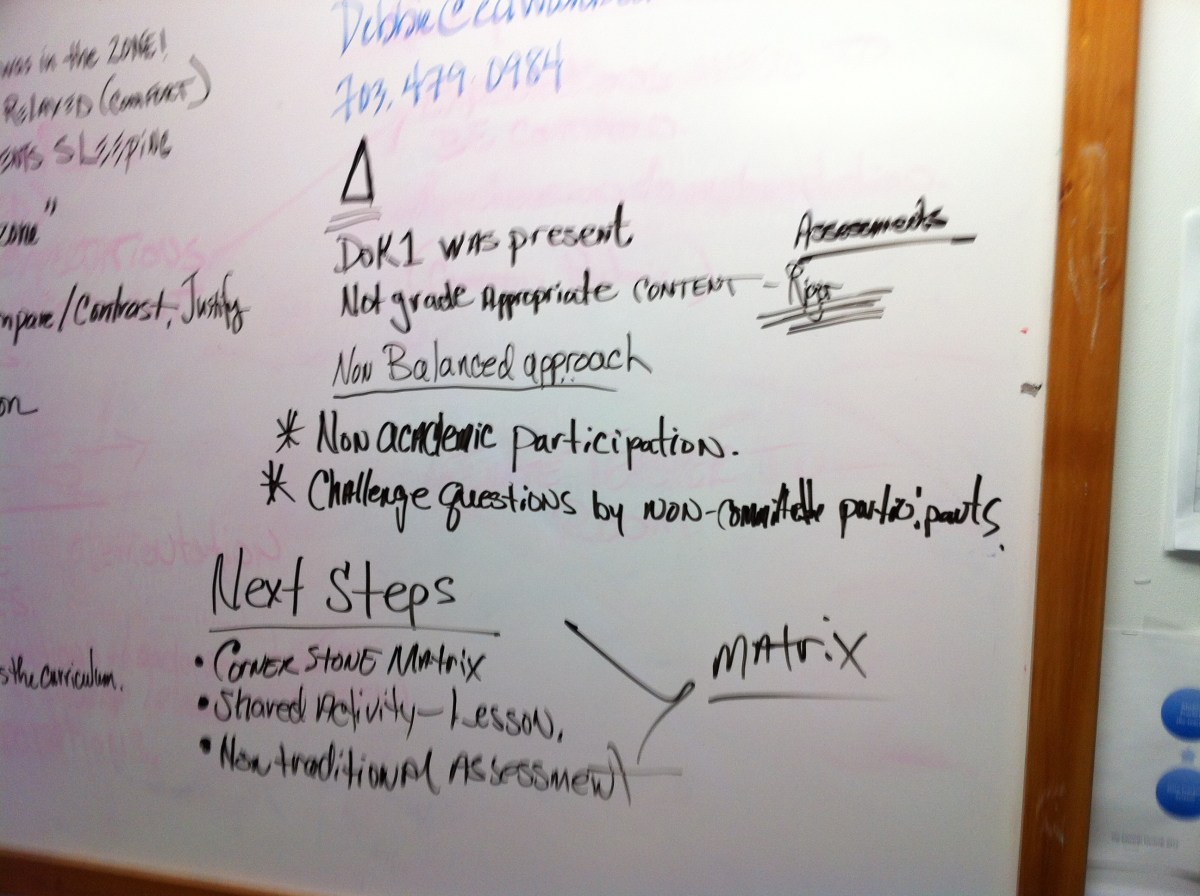 was in the ZONE!
RELAYED (CONFLICT)
SLEEPING
zone"
/Contrast, Justify
on
s the curriculum.
703.479.0984
Δ
DOK1 was present
Not grade Appropriate CONTENT -
Assessments
Rigor
Non Balanced approach
* Non academic participation.
* Challenge questions by NON-committee participants.
Next Steps
• CORNER STONE MAtrix
• Shared Activity - Lesson.
• Non traditional Assessment
MAtrix